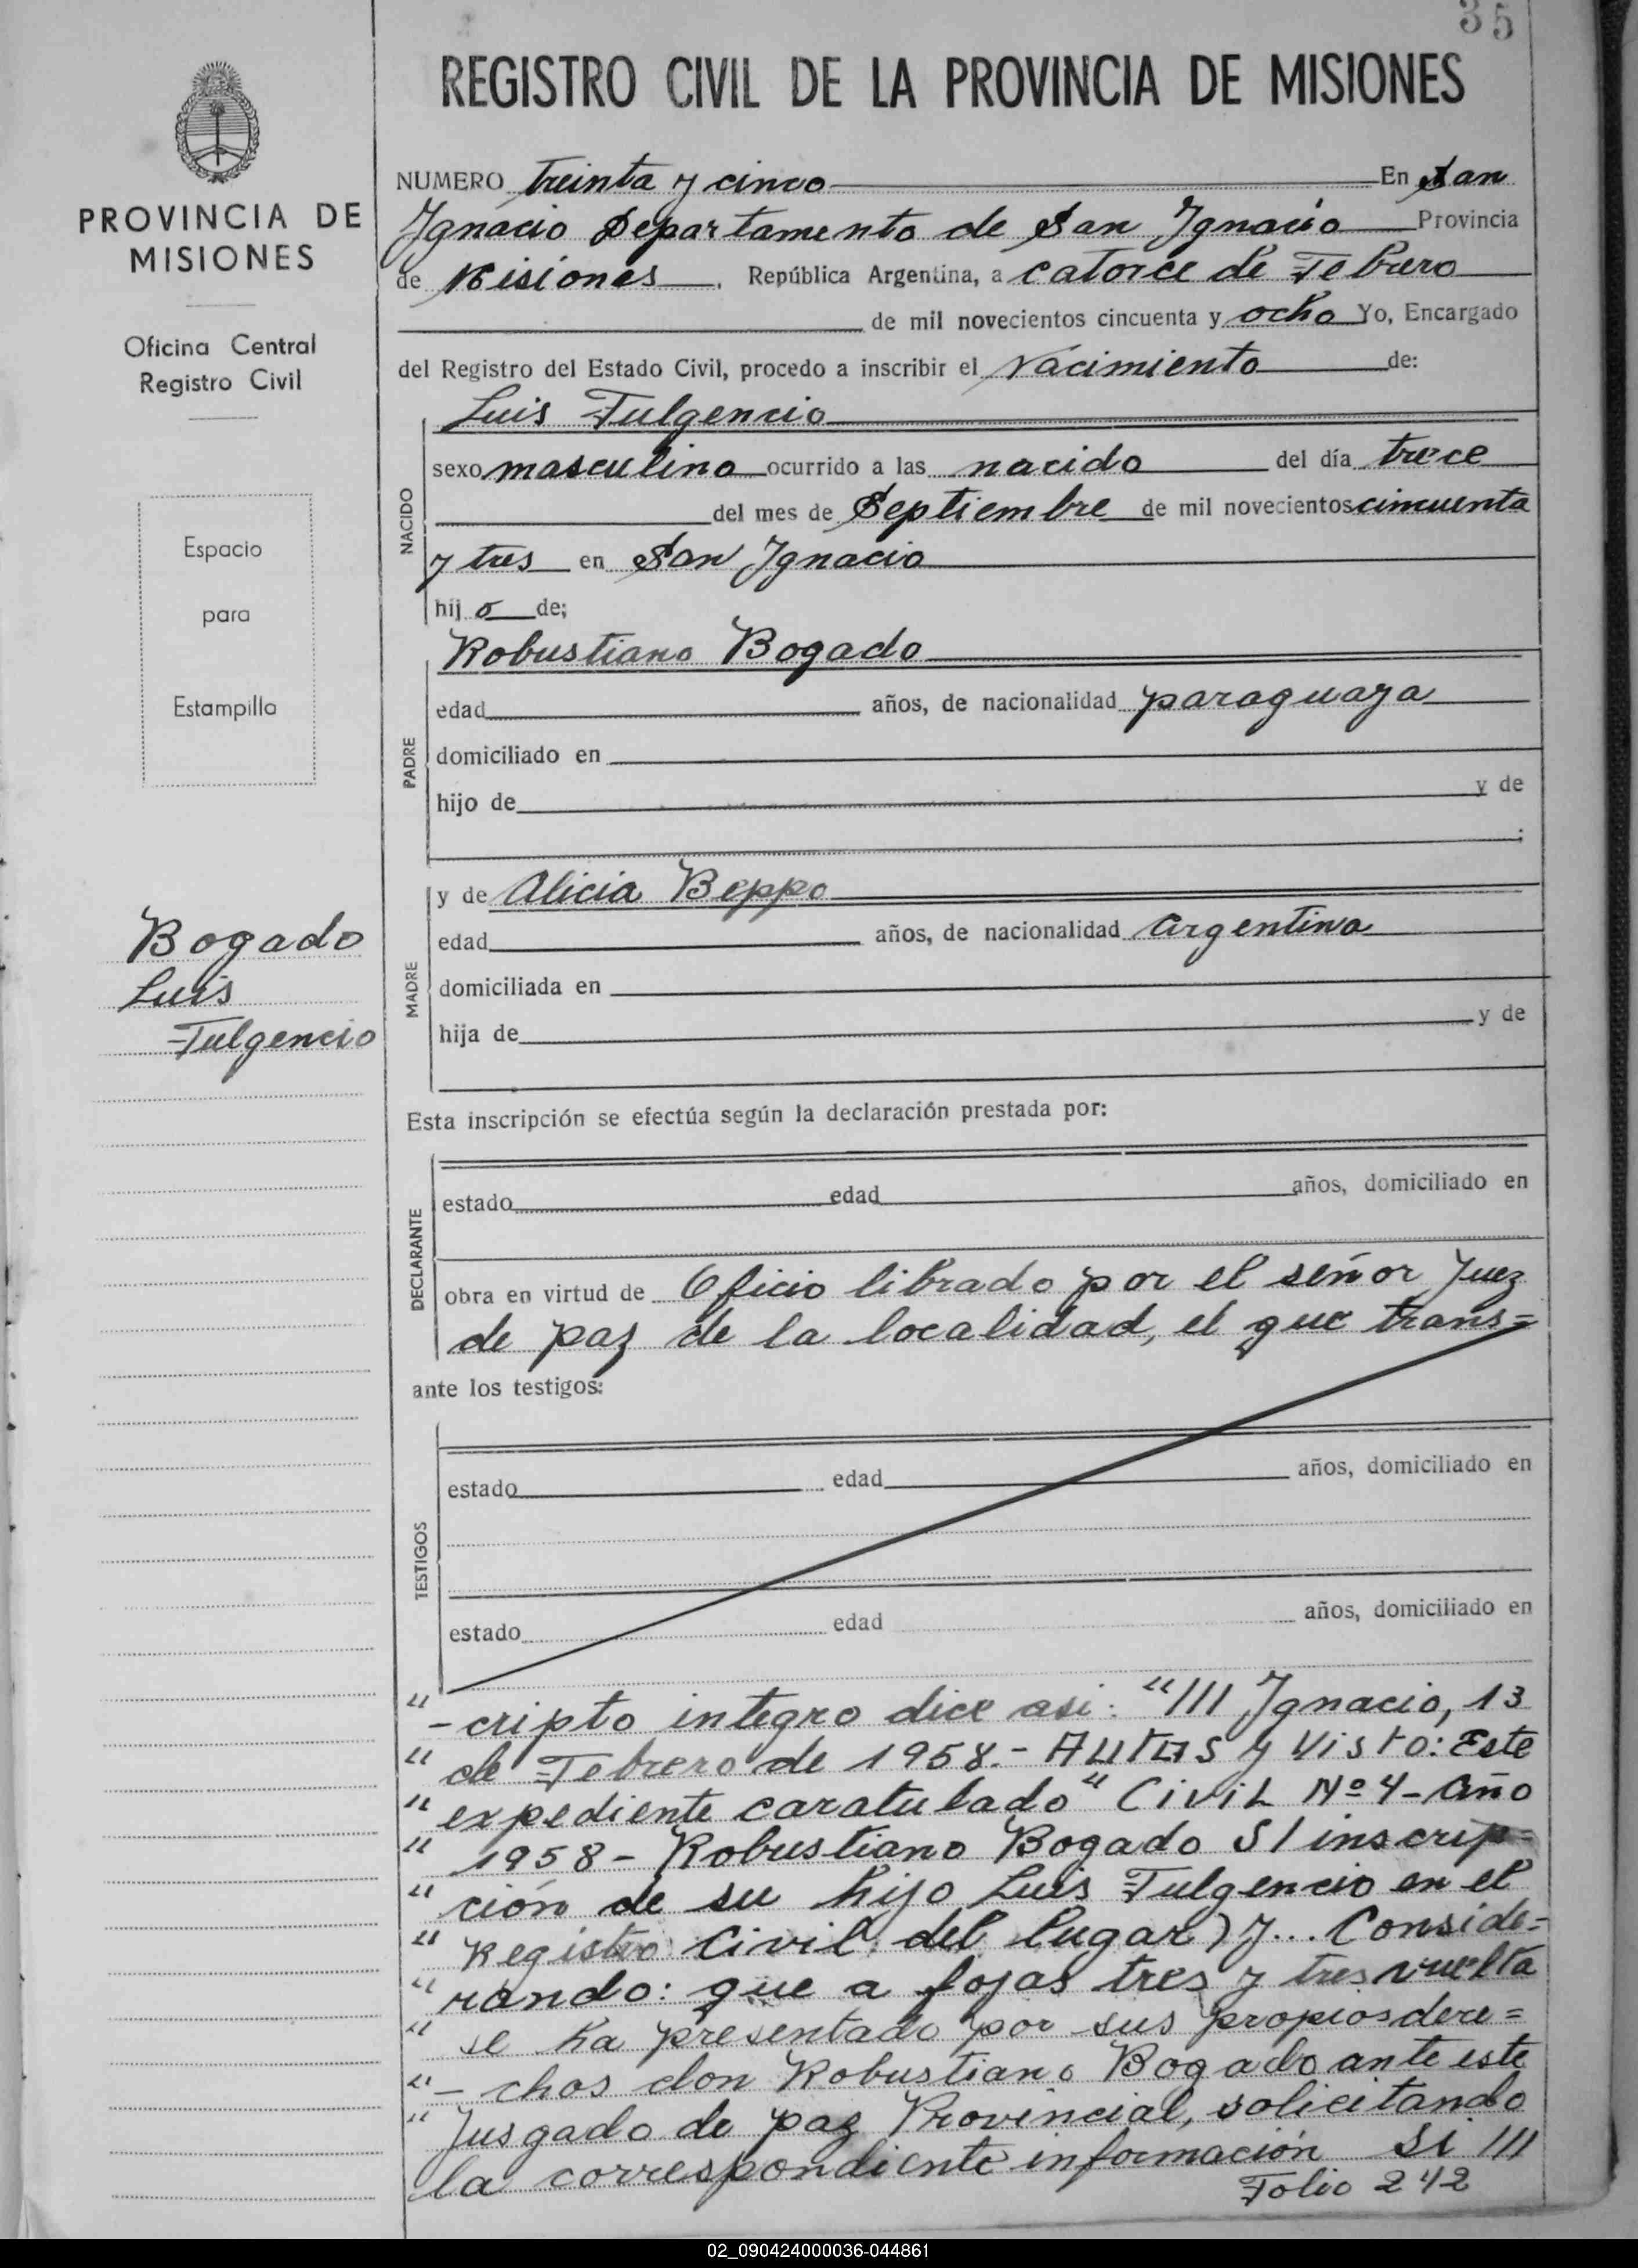 35
REGISTRO CIVIL DE LA PROVINCIA DE MISIONES
PROVINCIA DE
MISIONES
Oficina Central
Registro Civil
Espacio
para
Estampilla
Bogado
Luis
Fulgencio
NUMERO treinta y cinco En San
Ignacio Departamento de San Ignacio Provincia
de Misiones. República Argentina, a catorce de Febrero
de mil novecientos cincuenta y ocho Yo, Encargado
del Registro del Estado Civil, procedo a inscribir el Nacimiento de:
NACIDO
Luis Fulgencio
sexo masculino ocurrido a las nacido del día trece
del mes de Septiembre de mil novecientos cincuenta
y tres en San Ignacio
hij o de;
PADRE
Robustiano Bogado
edad años, de nacionalidad paraguaya
domiciliado en
hijo de y de
;
MADRE
y de Alicia Beppo
edad años, de nacionalidad argentina
domiciliada en
hija de y de
Esta inscripción se efectúa según la declaración prestada por:
DECLARANTE
estado edad años, domiciliado en
obra en virtud de Oficio librado por el señor Juez
de paz de la localidad, el que trans=
ante los testigos:
TESTIGOS
estado edad años, domiciliado en
estado edad años, domiciliado en
"-cripto integro dice asi: "/// Ignacio, 13
" de Febrero de 1958.- AUTOS y Visto: Este
" expediente caratulado "Civil Nº 4- Año
" 1958- Robustiano Bogado S/ inscrip=
" ción de su hijo Luis Fulgencio en el
" Registro Civil del lugar) y... Conside=
" rando: que a fojas tres y tres vuelta
" se ha presentado por sus propios dere=
"- chos don Robustiano Bogado ante este
" Jusgado de paz Provincial, solicitando
la correspondiente información si ///
Folio 242
02_090424000036-044861